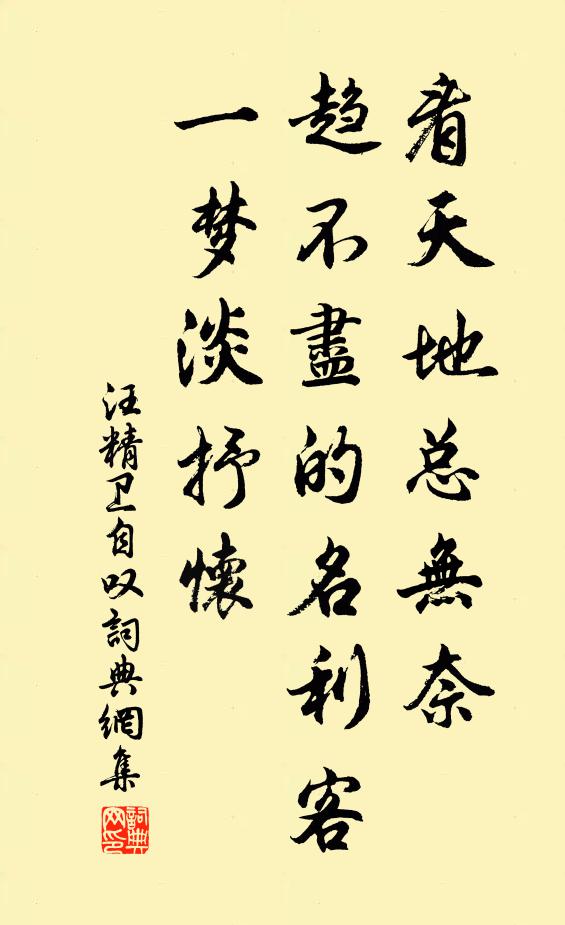 看天地总無奈
趋不盡的名利客
一梦淡抒懷
汪精卫自叹詞典網集
詞典网印